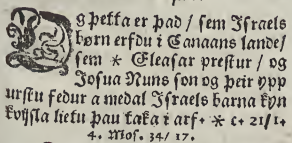 OG þetta er þad / sem Israels
børn erfdu i Canaans lande /
sem * Eleasar prestur / og
Josua Nuns son og þeir ypp
urstu fedur a medal Israels barna kyn
kvijsla lietu þau taka i arf. * c. 21/1.
4. Mos. 34/ 17.